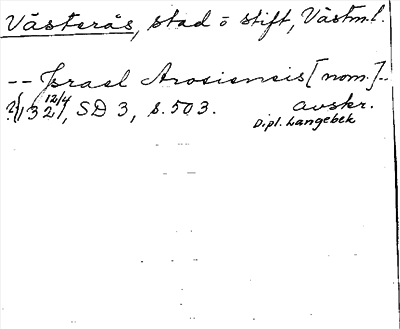 Västerås, stad o stift, Västm.l.
-- Israel Arosiensis [nom.] --
12/4 132?, SD 3, s. 503. avskr.
Dipl. Langebek